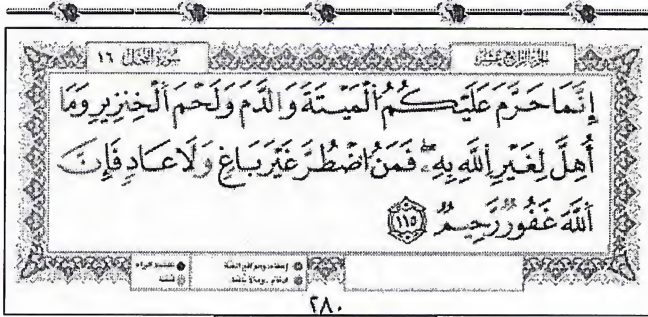 الجزء الرابع عشر
سورة النحل ١٦
إِنَّمَا حَرَّمَ عَلَيْكُمُ الْمَيْتَةَ وَالدَّمَ وَلَحْمَ الْخِنزِيرِ وَمَا
أُهِلَّ لِغَيْرِ اللَّهِ بِهِ ۖ فَمَنِ اضْطُرَّ غَيْرَ بَاغٍ وَلَا عَادٍ فَإِنَّ
اللَّهَ غَفُورٌ رَّحِيمٌ ١١٥
٢٨٠